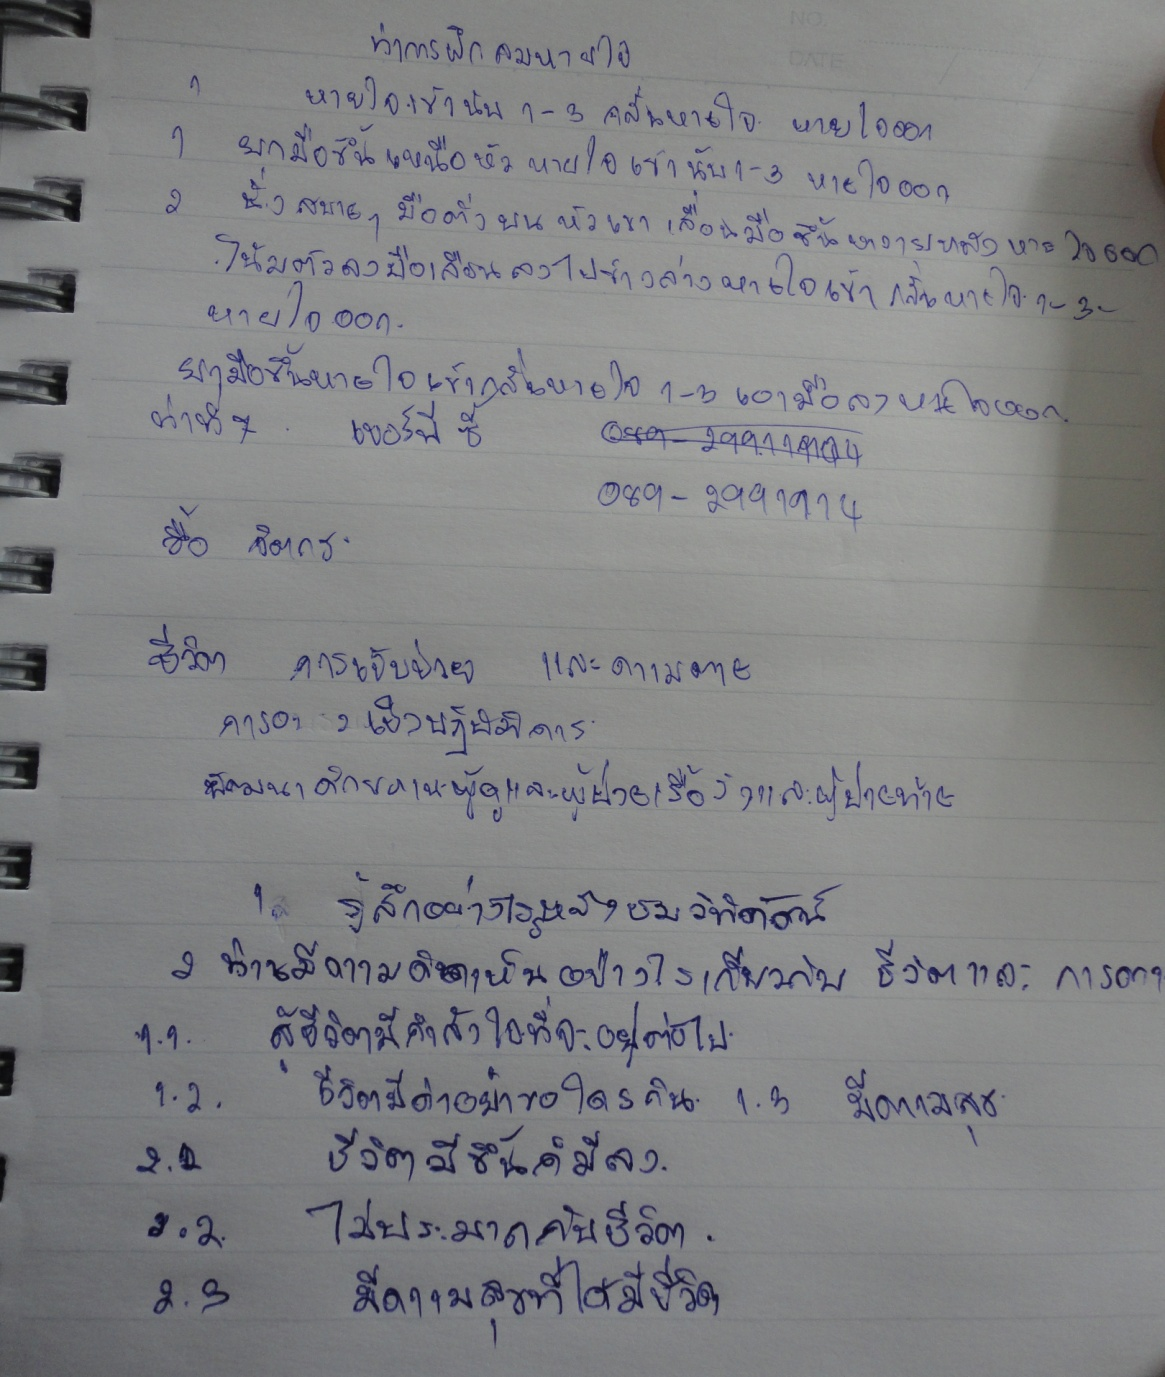 ท่าการฝึกลมหายใจ
1 หายใจเข้านับ 1-3 กลั้นหายใจ หายใจออก
1 ยกมือขึ้นเหนือหัว หายใจเข้านับ 1-3 หายใจออก
2 นั่งสบายๆ มือตั้งบนหัวเข่า เลื่อนมือขึ้น หายใจออก
โน้มตัวลงมือเลือนลงไปข้างล่างหายใจเข้า กลั้นหายใจ 1-3-
หายใจออก.
ยกมือขึ้นหายใจเข้ากลั้นหายใจ 1-3 เอามือลง หายใจออก.
ท่าที่ 7. เบอร์พี่ซี
089-2991914
ชื่อ จิตกร
ชีวิต การเจ็บป่วย และความตาย
พัฒนาศักยภาพผู้ดูแลผู้ป่วยเรื้อรังและผู้ป่วยท้าย
1. รู้สึกอย่างไรหลังชมวิทีทัศน์
2 ท่านมีความคิดเห็นอย่างไรเกี่ยวกับ ชีวิตและ การตา
1.1. สู้ชีวิตมีกำลังใจที่จะอยู่ต่อไป
1.2. ชีวิตมีค่าอย่าขอใครกิน 1.3 มีความสุข
2.1 ชีวิตมีขึ้นก็มีลง.
2.2. ไม่ประมาทกับชีวิต.
2.3 มีความสุขที่ได้มีชีวิต